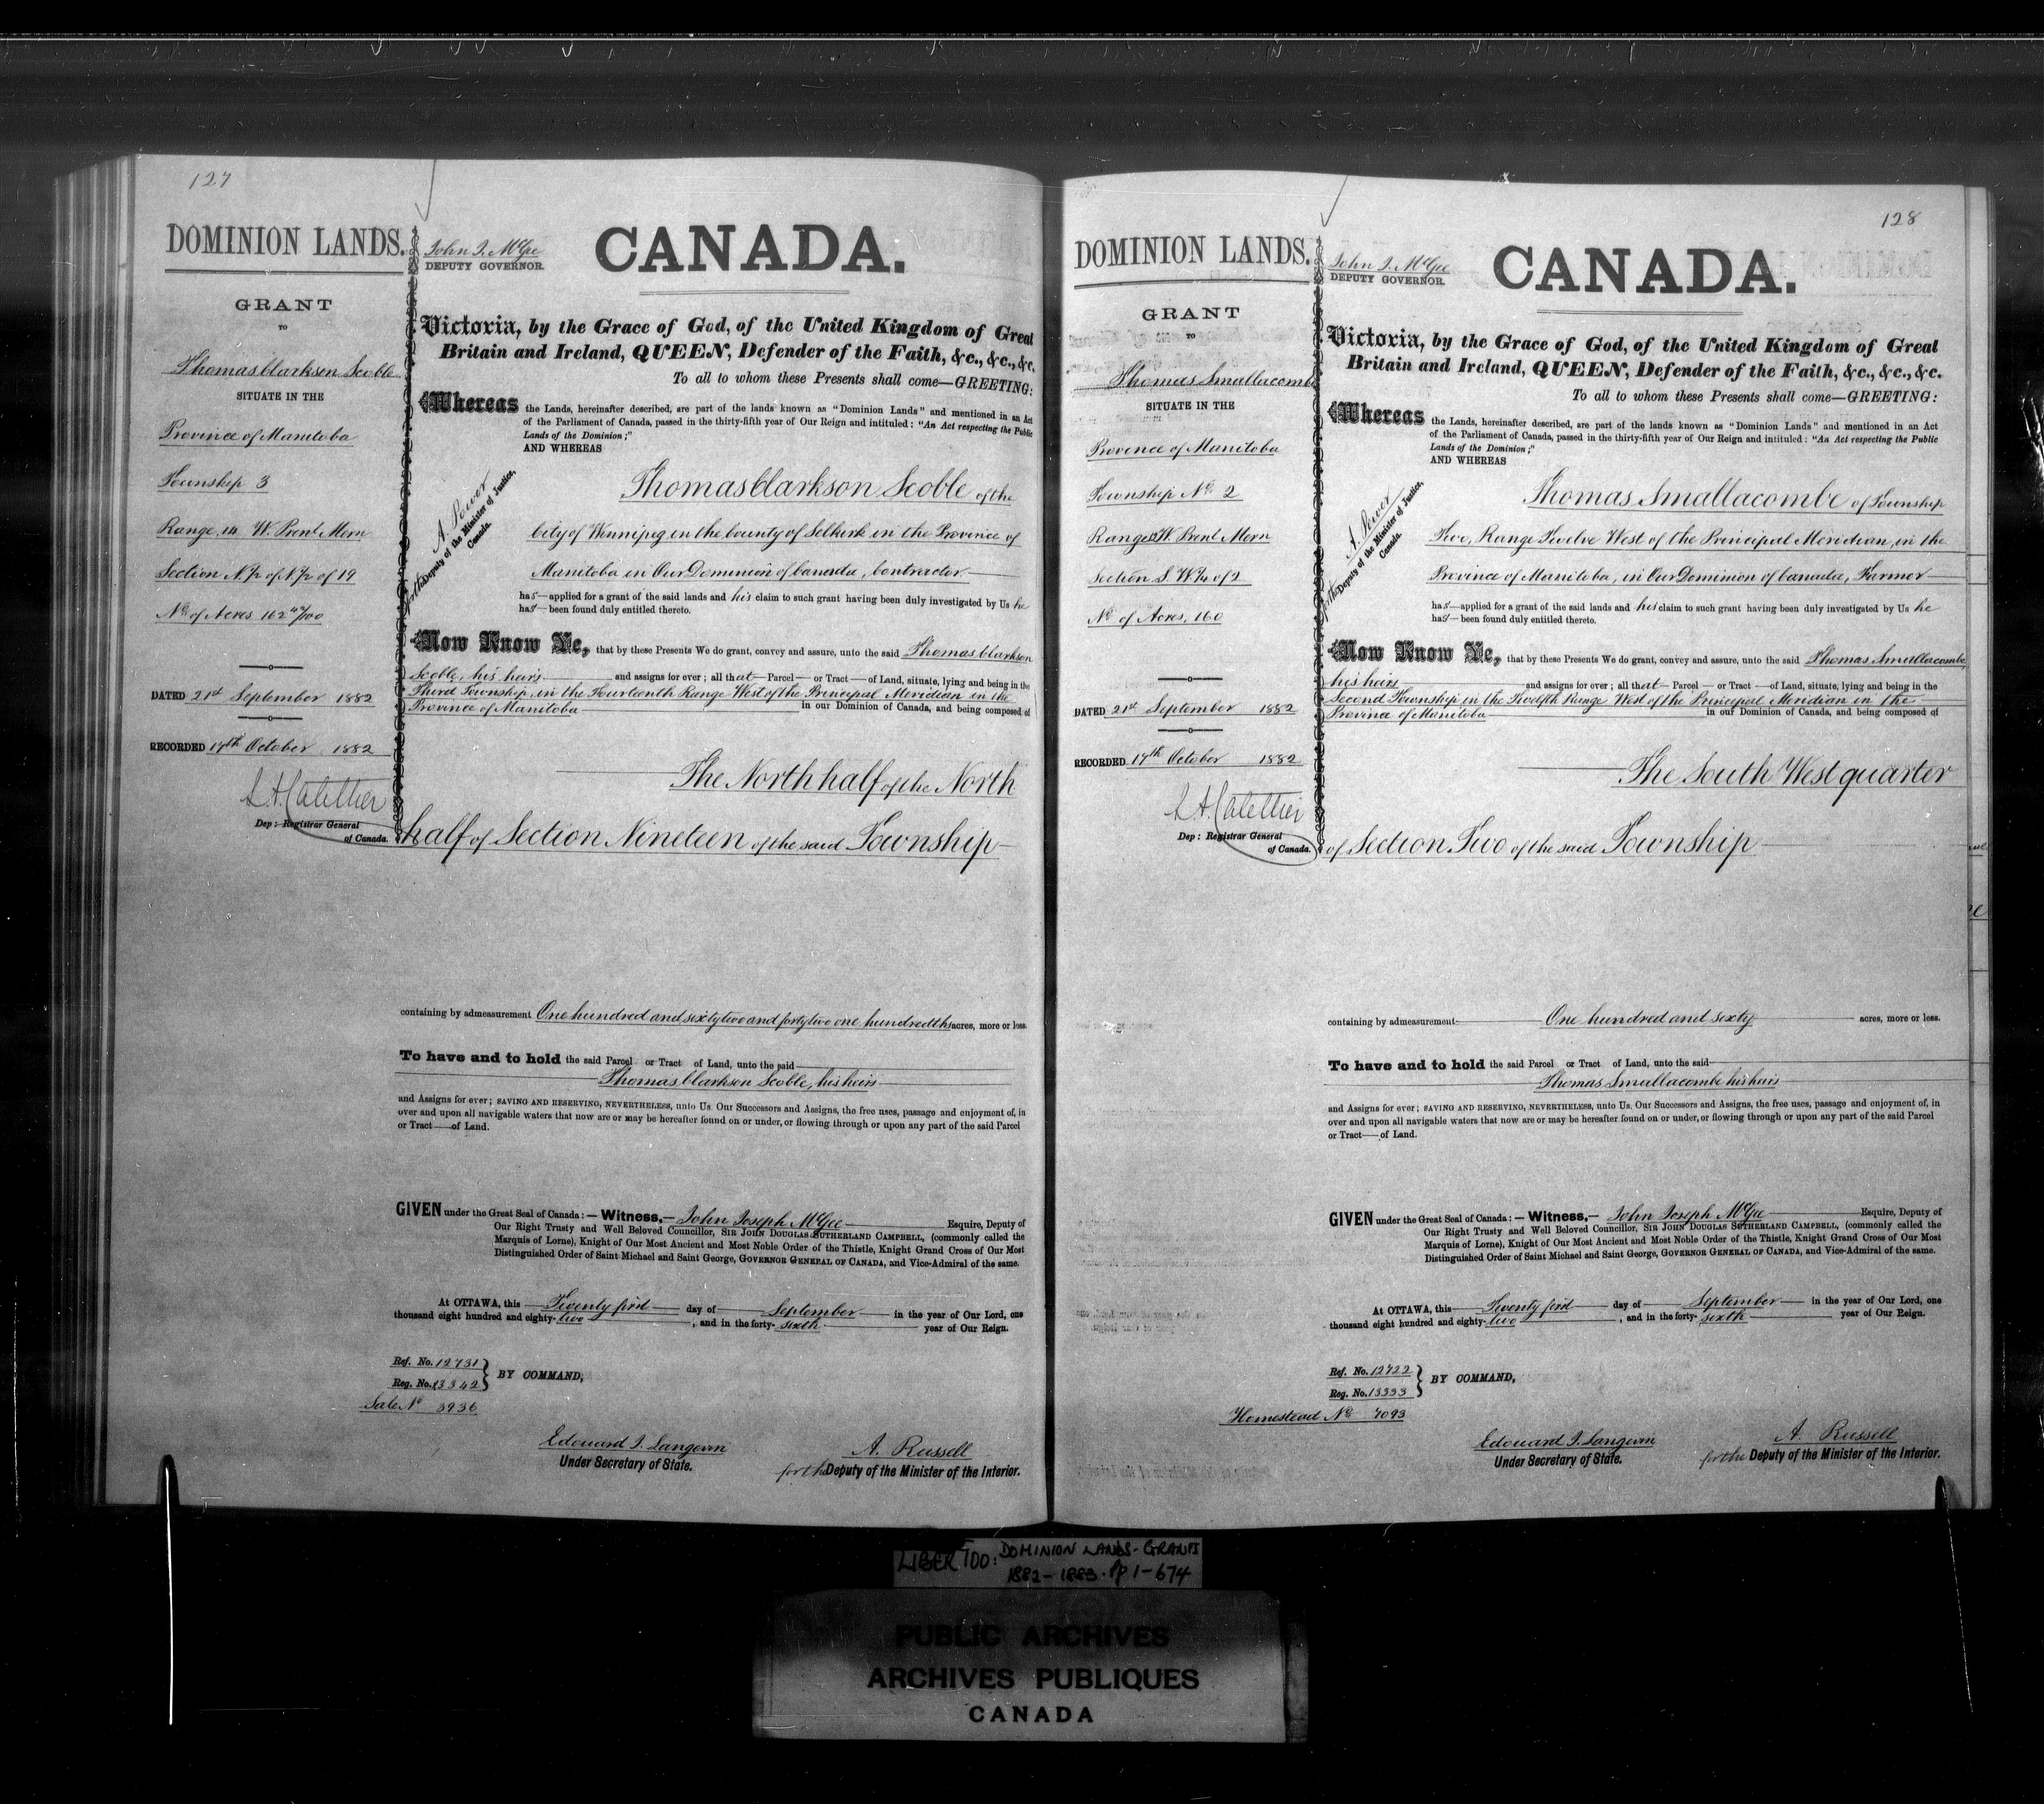 127
DOMINION LANDS.
GRANT
TO
Thomas Clarkson Scoble
SITUATE IN THE
Province of Manitoba
Township 3
Range 14 W. Prnl Mern
Section N.½ of N.½ of 19
No of Acres 162 42/100
DATED 21st September 1882
RECORDED 17th October 1882
Dep: Registrar General
of Canada.
John J. McGee
DEPUTY GOVERNOR.
CANADA.
Victoria, by the Grace of God, of the United Kingdom of Great
Britain and Ireland, QUEEN, Defender of the Faith, &c., &c., &c.
To all to whom these Presents shall come—GREETING:
Whereas the Lands, hereinafter described, are part of the lands known as "Dominion Lands" and mentioned in an Act
of the Parliament of Canada, passed in the thirty-fifth year of Our Reign and intituled: "An Act respecting the Public
Lands of the Dominion;"
AND WHEREAS
A. Power
for the Deputy of the Minister of Justice,
Canada.
Thomas Clarkson Scoble of the
City of Winnipeg in the County of Selkirk in the Province of
Manitoba in Our Dominion of Canada, Contractor
has applied for a grant of the said lands and his claim to such grant having been duly investigated by Us he
has been found duly entitled thereto.
Now Know Ye, that by these Presents We do grant, convey and assure, unto the said Thomas Clarkson
Scoble, his heirs and assigns for ever; all that Parcel or Tract of Land, situate, lying and being in the
Third Township, in the Fourteenth Range West of the Principal Meridian in the
Province of Manitoba in our Dominion of Canada, and being composed of
The North half of the North
half of Section Nineteen of the said Township
containing by admeasurement One hundred and sixty two and forty two one hundredths acres, more or less.
To have and to hold the said Parcel or Tract of Land, unto the said
Thomas Clarkson Scoble, his heirs
and Assigns for ever; SAVING AND RESERVING, NEVERTHELESS, unto Us. Our Successors and Assigns, the free uses, passage and enjoyment of, in
over and upon all navigable waters that now are or may be hereafter found on or under, or flowing through or upon any part of the said Parcel
or Tract of Land.
GIVEN under the Great Seal of Canada:— Witness,— John Joseph McGee Esquire, Deputy of
Our Right Trusty and Well Beloved Councillor, SIR JOHN DOUGLAS SUTHERLAND CAMPBELL, (commonly called the
Marquis of Lorne), Knight of Our Most Ancient and Most Noble Order of the Thistle, Knight Grand Cross of Our Most
Distinguished Order of Saint Michael and Saint George, GOVERNOR GENERAL OF CANADA, and Vice-Admiral of the same.
At OTTAWA, this Twenty first day of September in the year of Our Lord, one
thousand eight hundred and eighty-two, and in the forty-sixth year of Our Reign.
Ref. No. 12731
Reg. No. 13342
BY COMMAND,
Sale No 3936
Edouard J. Langevin
Under Secretary of State.
A. Russell
for the Deputy of the Minister of the Interior.
128
DOMINION LANDS.
GRANT
TO
Thomas Smallacombe
SITUATE IN THE
Province of Manitoba
Township No 2
Range 12 W. Prnl Mern
Section S. W.¼ of 2
No of Acres, 160
DATED 21st September 1882
RECORDED 17th October 1882
Dep: Registrar General
of Canada.
John J. McGee
DEPUTY GOVERNOR.
CANADA.
Victoria, by the Grace of God, of the United Kingdom of Great
Britain and Ireland, QUEEN, Defender of the Faith, &c., &c., &c.
To all to whom these Presents shall come—GREETING:
Whereas the Lands, hereinafter described, are part of the lands known as "Dominion Lands" and mentioned in an Act
of the Parliament of Canada, passed in the thirty-fifth year of Our Reign and intituled: "An Act respecting the Public
Lands of the Dominion;"
AND WHEREAS
A. Power
for the Deputy of the Minister of Justice,
Canada.
Thomas Smallacombe of Township
Two, Range Twelve West of the Principal Meridian, in the
Province of Manitoba, in Our Dominion of Canada, Farmer
has applied for a grant of the said lands and his claim to such grant having been duly investigated by Us he
has been found duly entitled thereto.
Now Know Ye, that by these Presents We do grant, convey and assure, unto the said Thomas Smallacombe,
his heirs and assigns for ever; all that Parcel or Tract of Land, situate, lying and being in the
Second Township in the Twelfth Range West of the Principal Meridian in the
Province of Manitoba in our Dominion of Canada, and being composed of
The South West quarter
of Section Two of the said Township
containing by admeasurement One hundred and sixty acres, more or less.
To have and to hold the said Parcel or Tract of Land, unto the said
Thomas Smallacombe his heirs
and Assigns for ever; SAVING AND RESERVING, NEVERTHELESS, unto Us. Our Successors and Assigns, the free uses, passage and enjoyment of, in
over and upon all navigable waters that now are or may be hereafter found on or under, or flowing through or upon any part of the said Parcel
or Tract of Land.
GIVEN under the Great Seal of Canada:— Witness,— John Joseph McGee Esquire, Deputy of
Our Right Trusty and Well Beloved Councillor, SIR JOHN DOUGLAS SUTHERLAND CAMPBELL, (commonly called the
Marquis of Lorne), Knight of Our Most Ancient and Most Noble Order of the Thistle, Knight Grand Cross of Our Most
Distinguished Order of Saint Michael and Saint George, GOVERNOR GENERAL OF CANADA, and Vice-Admiral of the same.
At OTTAWA, this Twenty first day of September in the year of Our Lord, one
thousand eight hundred and eighty-two, and in the forty-sixth year of Our Reign.
Ref. No. 12722
Reg. No. 13333
BY COMMAND,
Homestead No 7093
Edouard J. Langevin
Under Secretary of State.
A. Russell
for the Deputy of the Minister of the Interior.
LIBER 100: DOMINION LANDS-GRANTS
1882-1883. Pp 1-674
PUBLIC ARCHIVES
ARCHIVES PUBLIQUES
CANADA